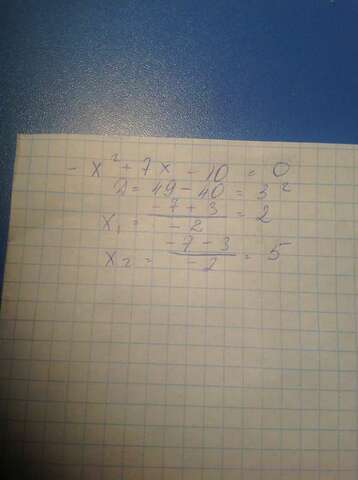 - x² + 7x - 10 = 0
D = 49 - 40 = 3²
x₁ = (-7 + 3)/(-2) = 2
x₂ = (-7 - 3)/(-2) = 5